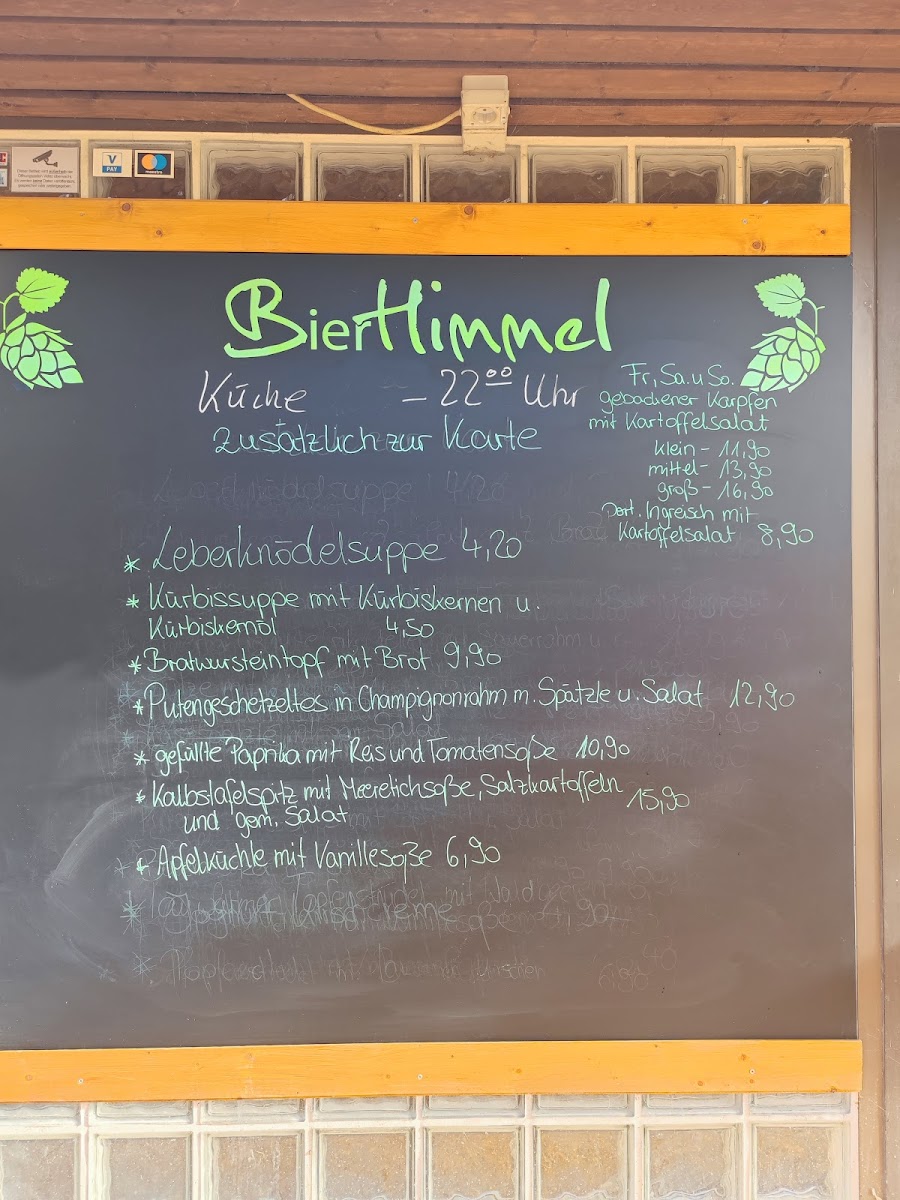 V
PAY
maestro
BierHimmel
Küche – 22⁰⁰ Uhr
zusätzlich zur Karte
Fr, Sa. u So.
gebackener Karpfen
mit Kartoffelsalat
klein – 11,90
mittel – 13,90
groß – 16,90
Port. Ingreisch mit
Kartoffelsalat 8,90
Leberknödelsuppe 4,20
* Leberknödelsuppe 4,20
* Kürbissuppe mit Kürbiskernen u.
Kürbiskernöl 4,50
* Bratwursteintopf mit Brot 9,90
* Putengeschetzeltes in Champignonrahm m. Spätzle u. Salat 12,90
* gefüllte Paprika mit Reis und Tomatensoße 10,90
* Kalbstafelspitz mit Meeretichsoße, Salzkartoffeln
und gem. Salat 15,90
* Apfelküchle mit Vanillesoße 6,90